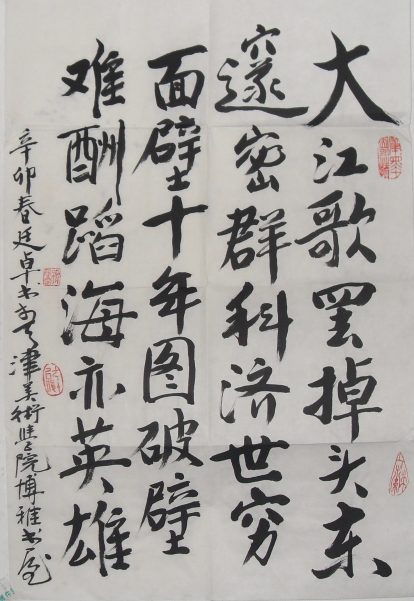 大江歌罢掉头东
邃密群科济世穷
面壁十年图破壁
难酬蹈海亦英雄
辛卯春廷卓书天津美術学院博雅书屋